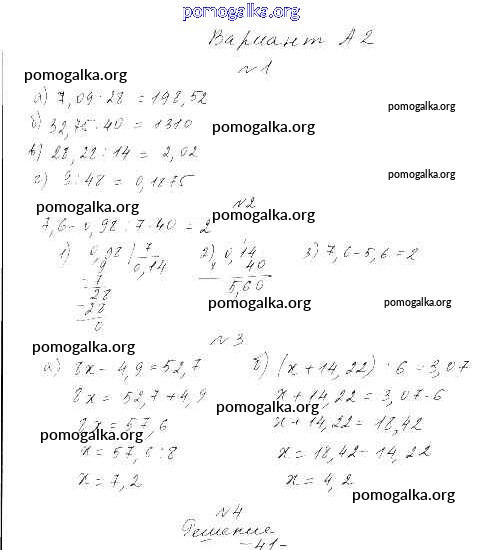 pomogalka.org
Вариант А2
pomogalka.org
№1
а) 7,09 · 28 = 198,52
pomogalka.org
б) 32,75 · 40 = 1310
pomogalka.org
в) 28,28 : 14 = 2,02
pomogalka.org
г) 9 : 48 = 0,1875
pomogalka.org
№2
pomogalka.org
7,6 - 0,98 : 7 · 40 = 2
1) 0,98 | 7
0,14
2) 0,14
40
5,60
3) 7,6 - 5,6 = 2
7
28
- 28
0
pomogalka.org
pomogalka.org
№3
pomogalka.org
а) 8x - 4,9 = 52,7
8x = 52,7 + 4,9
8x = 57,6
pomogalka.org
x = 57,6 : 8
x = 7,2
б) (x + 14,22) : 6 = 3,07
x + 14,22 = 3,07 · 6
pomogalka.org
x + 14,22 = 18,42
x = 18,42 - 14,22
x = 4,2
pomogalka.org
№4
Решение
-41-